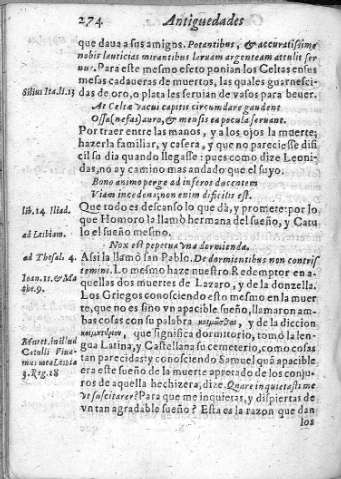 274 Antiguedades
que daua a sus amigos. Potantibus, & accuratissime
nobis lauticias mirantibus laruam argenteam attulit ser
uus. Para este mesmo efeto ponian los Celtas en sus
mesas calaueras de muertos, las quales guarnesci-
Silius Ita. ll. 13
das de oro, o plata les seruian de vasos para beuer.
At Celtæ vacui capitis circumdare gaudent
Ossa (nefas) auro, & mensis ea pocula seruant.
Por traer entre las manos, y a los ojos la muerte;
hazerla familiar, y casera, y que no pareciesse difi
cil su dia quando llegasse: pues como dize Leoni-
das, no ay camino mas andado que el suyo.
Bono animo perge ad inferos ducentem
Viam incedens, non enim dificilis est.
lib. 14 Iliad.
Que todo es descanso lo que dà, y promete: por lo
que Homero la llamò hermana del sueño, y Catu
ad Lesbiam.
lo el sueño mesmo.
Nox est perpetua vna dormienda.
ad Thesal. 4.
Assi la llamò san Pablo. De dormientibus non contris
Ioan. 11. & Ma
temini. Lo mesmo haze nuestro Redemptor en a-
the. 9.
quellas dos muertes de Lazaro, y de la donzella.
Los Griegos conosciendo esto mesmo en la muer
te, que no es sino vn apacible sueño, llamaron am-
bas cosas con su palabra y de la diccion
que significa dormitorio, tomò la len-
gua Latina, y Castellana su cemeterio, como cosas
Catulli
tan parecidas: y conosciendo Samuel quã apacible
era este sueño de la muerte apretado de los conju-
3. Reg. 18
ros de aquella hechizera, dize. Quare inquietasti me
vt suscitarer? Para que me inquietas, y dispiertas de
vn tan agradable sueño? Esta es la razon que dan
los